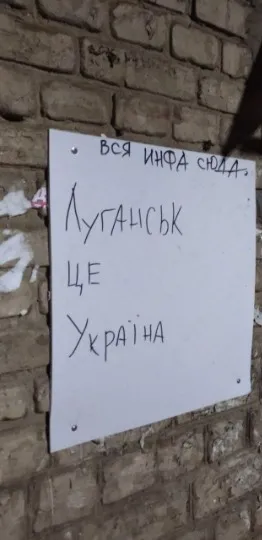 ВСЯ ИНФА СЮДА.
Луганськ
ЦЕ
Україна